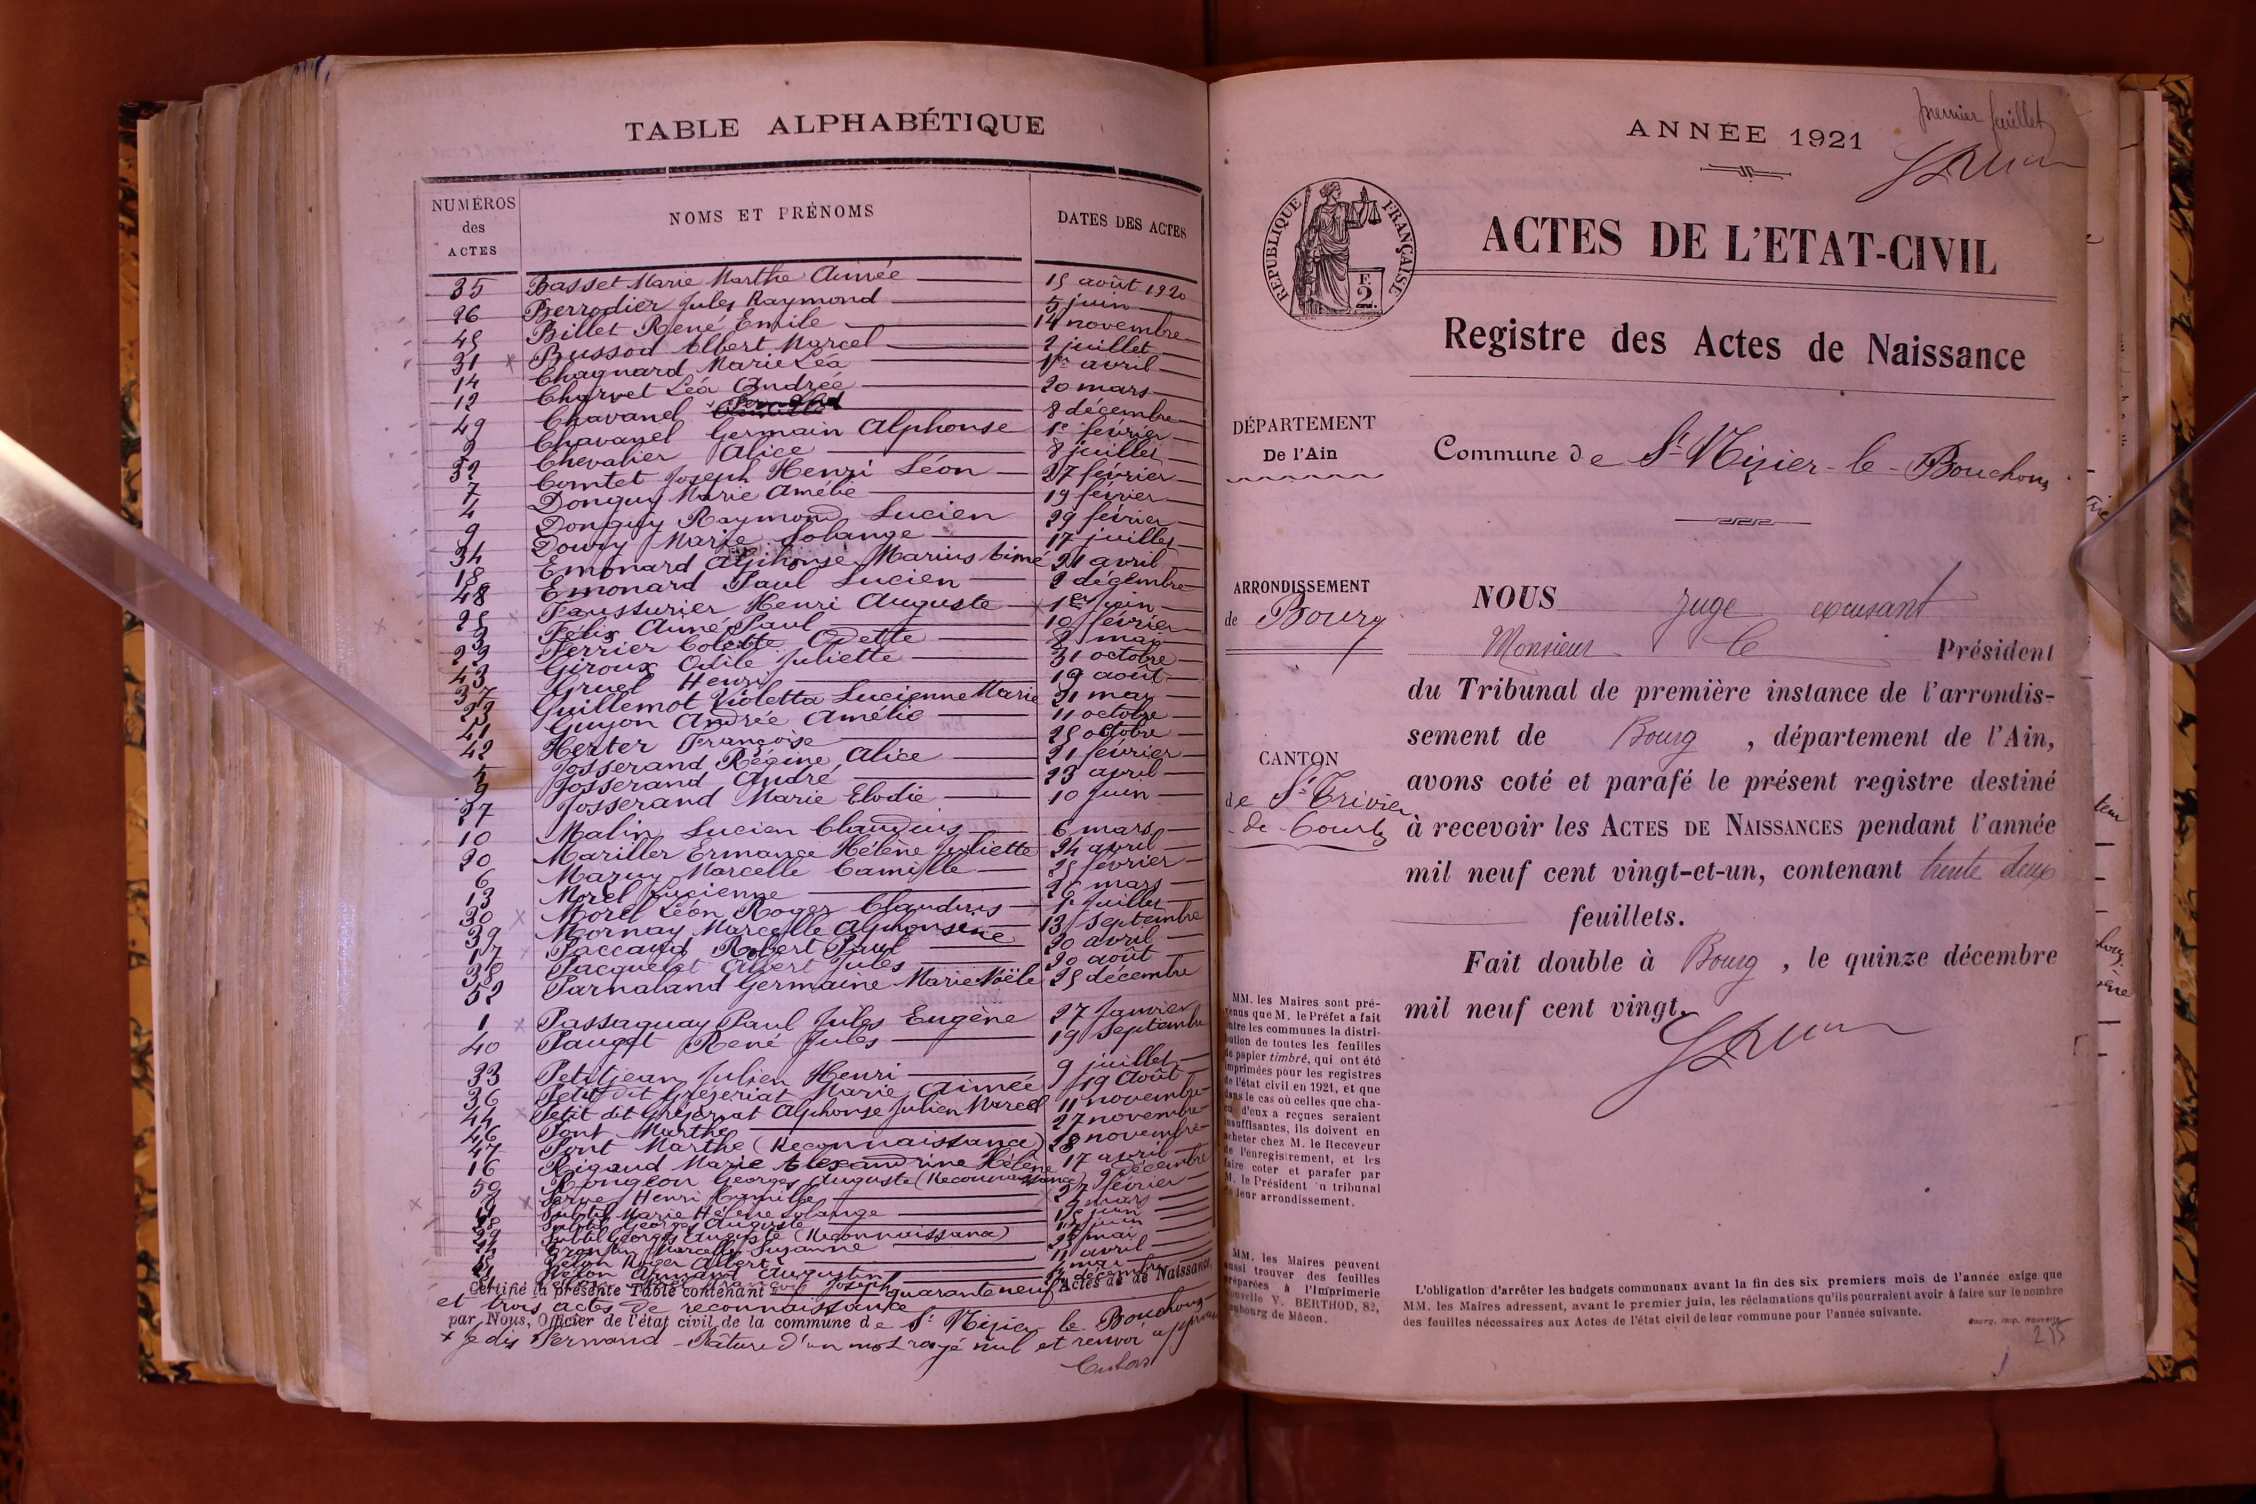 TABLE ALPHABÉTIQUE
NUMÉROS des ACTES
NOMS ET PRÉNOMS
DATES DES ACTES
35 Basset Marie Marthe Aimée 15 août 1920
26 Berrodier Jules Raymond 5 juin
45 Billet René Emile 14 novembre
31 Bussod Albert Marcel 2 juillet
14 Chagnard Marie Léa 1er avril
12 Charvet Léa Andrée 20 mars
49 Chavanel 8 décembre
2 Chavanel Germain Alphonse 1e février
32 Chevalier Alice 8 juillet
7 Comtet Joseph Henri Léon 27 février
4 Donguy Marie Amélie 19 février
9 Donguy Raymond Lucien 29 février
34 Doury Marie Solange 17 juillet
18 Emonard Alphonse Marius Aimé 21 avril
48 Emonard Paul Lucien 2 décembre
25 Faussurier Henri Auguste 1er juin
3 Félix Aimé Paul 10 février
22 Ferrier Colette Odette 8 mai
43 Giroux Odile Juliette 31 octobre
37 Gruel Henri 19 août
23 Guillemot Violetta Lucienne Marie 21 mai
41 Guyon Andrée Amélie 11 octobre
42 Herter Françoise 25 octobre
5 Josserand Régine Alice 21 février
Josserand André 23 avril
27 Josserand Marie Elodie 10 juin
10 Malin Lucien Claudius 6 mars
20 Mariller Ermance Hélène Juliette 24 avril
6 Mazuy Marcelle Camille 25 février
13 Morel Lucienne 26 mars
30 Morel Léon Roger Claudius 1er juillet
39 Mornay Marcelle Alphonsine 13 septembre
17 Paccaud Robert Paul 20 avril
38 Pacquelet Albert Jules 20 août
52 Parnaland Germaine Marie Noële 25 décembre
1 Passaquay Paul Jules Eugène 27 Janvier
40 Pauget René Jules 19 Septembre
33 Petitjean Julien Henri 9 juillet
36 Petit dit Grézériat Marie Aimée 19 Août
44 Petit dit Grézériat Alphonse Julien Marcel 11 novembre
46 Pont Marthe 27 novembre
47 Pont Marthe (Reconnaissance) 28 novembre
16 Rigaud Marie Alexandrine Hélène 17 avril
50 Rongeon Georges Auguste (Reconnaissance) 9 décembre
Servas Henri Camille 27 février
Subtil Marie Hélène Solange mars
28 Subtil Georges Auguste juin
29 Subtil Georges Auguste (Reconnaissance) juin
24 Marcelle Suzanne mai
15 Velon Roger Albert 11 avril
21 Velon Armand Augustin mai
Joseph décembre
Certifié la présente Table contenant quarante neuf Actes de de Naissance,
et trois actes de reconnaissance
par Nous, Officier de l'état civil de la commune de St Nizier le Bouchoux
x Je dis Fernand Rature d'un mot rayé nul et renvoi approuvé
premier feuillet
ANNÉE 1921
RÉPUBLIQUE FRANÇAISE
2
ACTES DE L'ETAT-CIVIL
Registre des Actes de Naissance
DÉPARTEMENT
De l'Ain
Commune de St Nizier-le-Bouchoux
ARRONDISSEMENT
de Bourg
CANTON
de St Trivier
de-Courtes
NOUS juge excusant
Monsieur le Président
du Tribunal de première instance de l'arrondis-
sement de Bourg, département de l'Ain,
avons coté et parafé le présent registre destiné
à recevoir les ACTES DE NAISSANCES pendant l'année
mil neuf cent vingt-et-un, contenant trente deux
feuillets.
Fait double à Bourg, le quinze décembre
mil neuf cent vingt.
MM. les Maires sont pré-
venus que M. le Préfet a fait
entre les communes la distri-
bution de toutes les feuilles
de papier timbré, qui ont été
imprimées pour les registres
de l'état civil en 1921, et que
dans le cas où celles que cha-
cun d'eux a reçues seraient
insuffisantes, ils doivent en
acheter chez M. le Receveur
de l'enregistrement, et les
faire coter et parafer par
M. le Président du tribunal
de leur arrondissement.
MM. les Maires peuvent
aussi trouver des feuilles
préparées à l'Imprimerie
nouvelle Y. BERTHOD, 82,
faubourg de Mâcon.
L'obligation d'arrêter les budgets communaux avant la fin des six premiers mois de l'année exige que
MM. les Maires adressent, avant le premier juin, les réclamations qu'ils pourraient avoir à faire sur le nombre
des feuilles nécessaires aux Actes de l'état civil de leur commune pour l'année suivante.
Bourg, Imp. Nouvelle
215